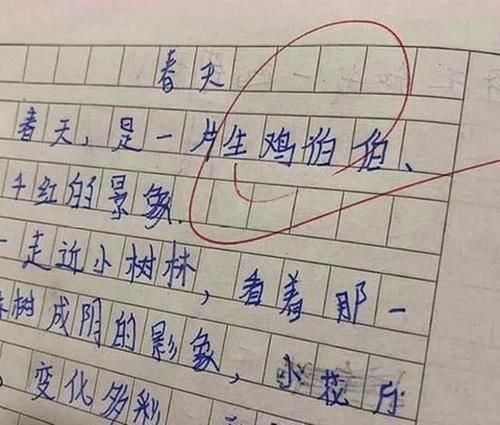 春天
春天，是一片生鸡伯伯、
千红的景象.
一走近小树林，看着那一
树成阴的影象，小花
，变化多彩